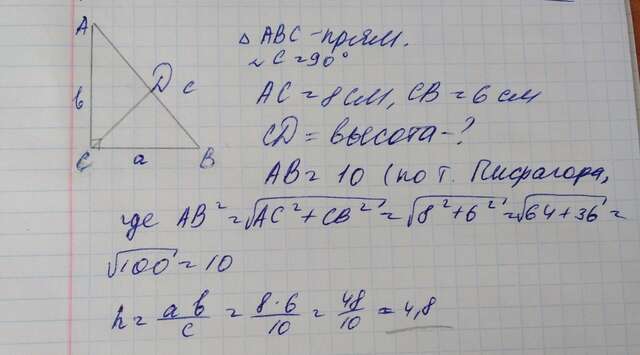 A
b
D
c
C
a
B
△ ABC - прям.
∠ C = 90°
AC = 8 см, CB = 6 см
CD = высота - ?
AB = 10 (по т. Пифагора,
где AB² = √AC² + CB² = √8² + 6² = √64 + 36 =
√100 = 10
h = ab/c = 8·6/10 = 48/10 = 4,8